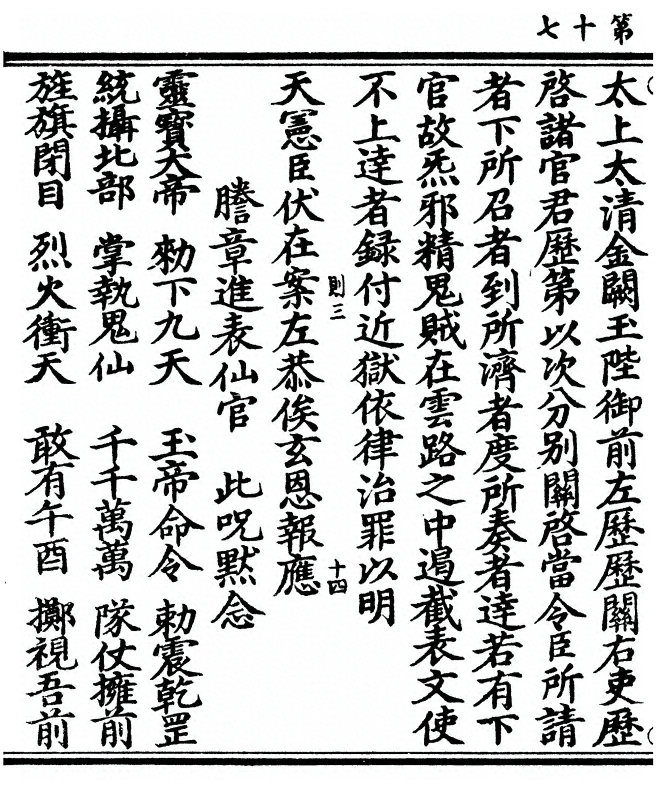 第十七
太上太清金闕玉陛御前左歷歷關右吏歷
啓諸官君歷第以次分別關啓當令臣所請
者下所召者到所濟者度所奏者達若有下
官故炁邪精鬼賊在雲路之中遏截表文使
不上達者録付近獄依律治罪以明
則三
天憲臣伏在案左恭俟玄恩報應
十四
謄章進表仙官 此呪默念
靈寶大帝 勑下九天 玉帝命令 勑震乾罡
統攝北部 掌執鬼仙 千千萬萬 隊仗擁前
旌旗閉目 烈火衝天 敢有午酉 擲視吾前